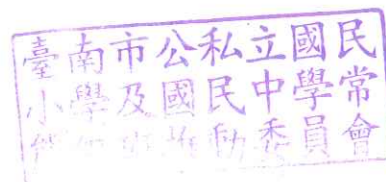 臺南市公私立國民
小學及國民中學常
班推動委員會